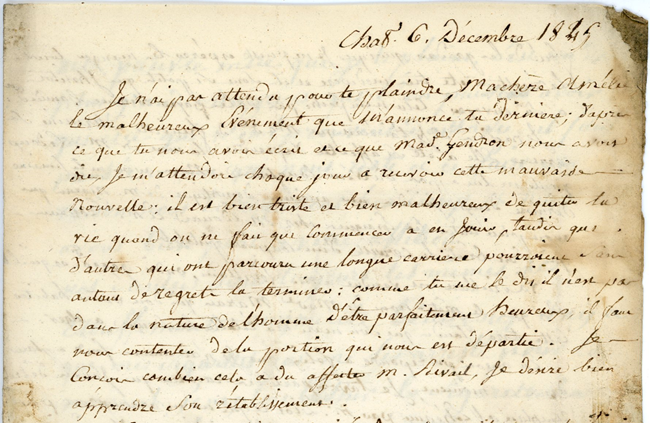 6. Décembre 1845
Je n'ai pas attendu pour te plaindre, Ma chere Amélie
le malheureux Événement que M'annonce ta derniere; d'apres
ce que tu nous avois écrit et ce que Mad. Gendron nous avoit
dit, Je m'attendois chaque jour a recevoir cette mauvaise
Nouvelle; il est bien triste et bien malheureux de quiter la
vie quand on ne fait que commencer a en Jouir, tandis que
d'autre qui ont parcouru une longue carriere pourroient
autant de regrets la terminer: comme tu me le dis il n'est pas
dans la nature de l'homme d'être parfaitement heureux, il faut
nous contenter de la portion qui nous est départie. Je
Conçois combien cela a du affecter M. Rivail, Je désire bien
apprendre Son rétablissement.